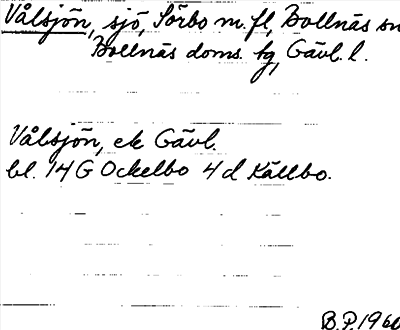 Vålsjön, sjö, Sörbo m.fl, Bollnäs sn
Bollnäs doms. tg, Gävl. l.
Vålsjön, ek Gävl.
bl. 14 G Ockelbo 4 d Källbo.
B.P. 196